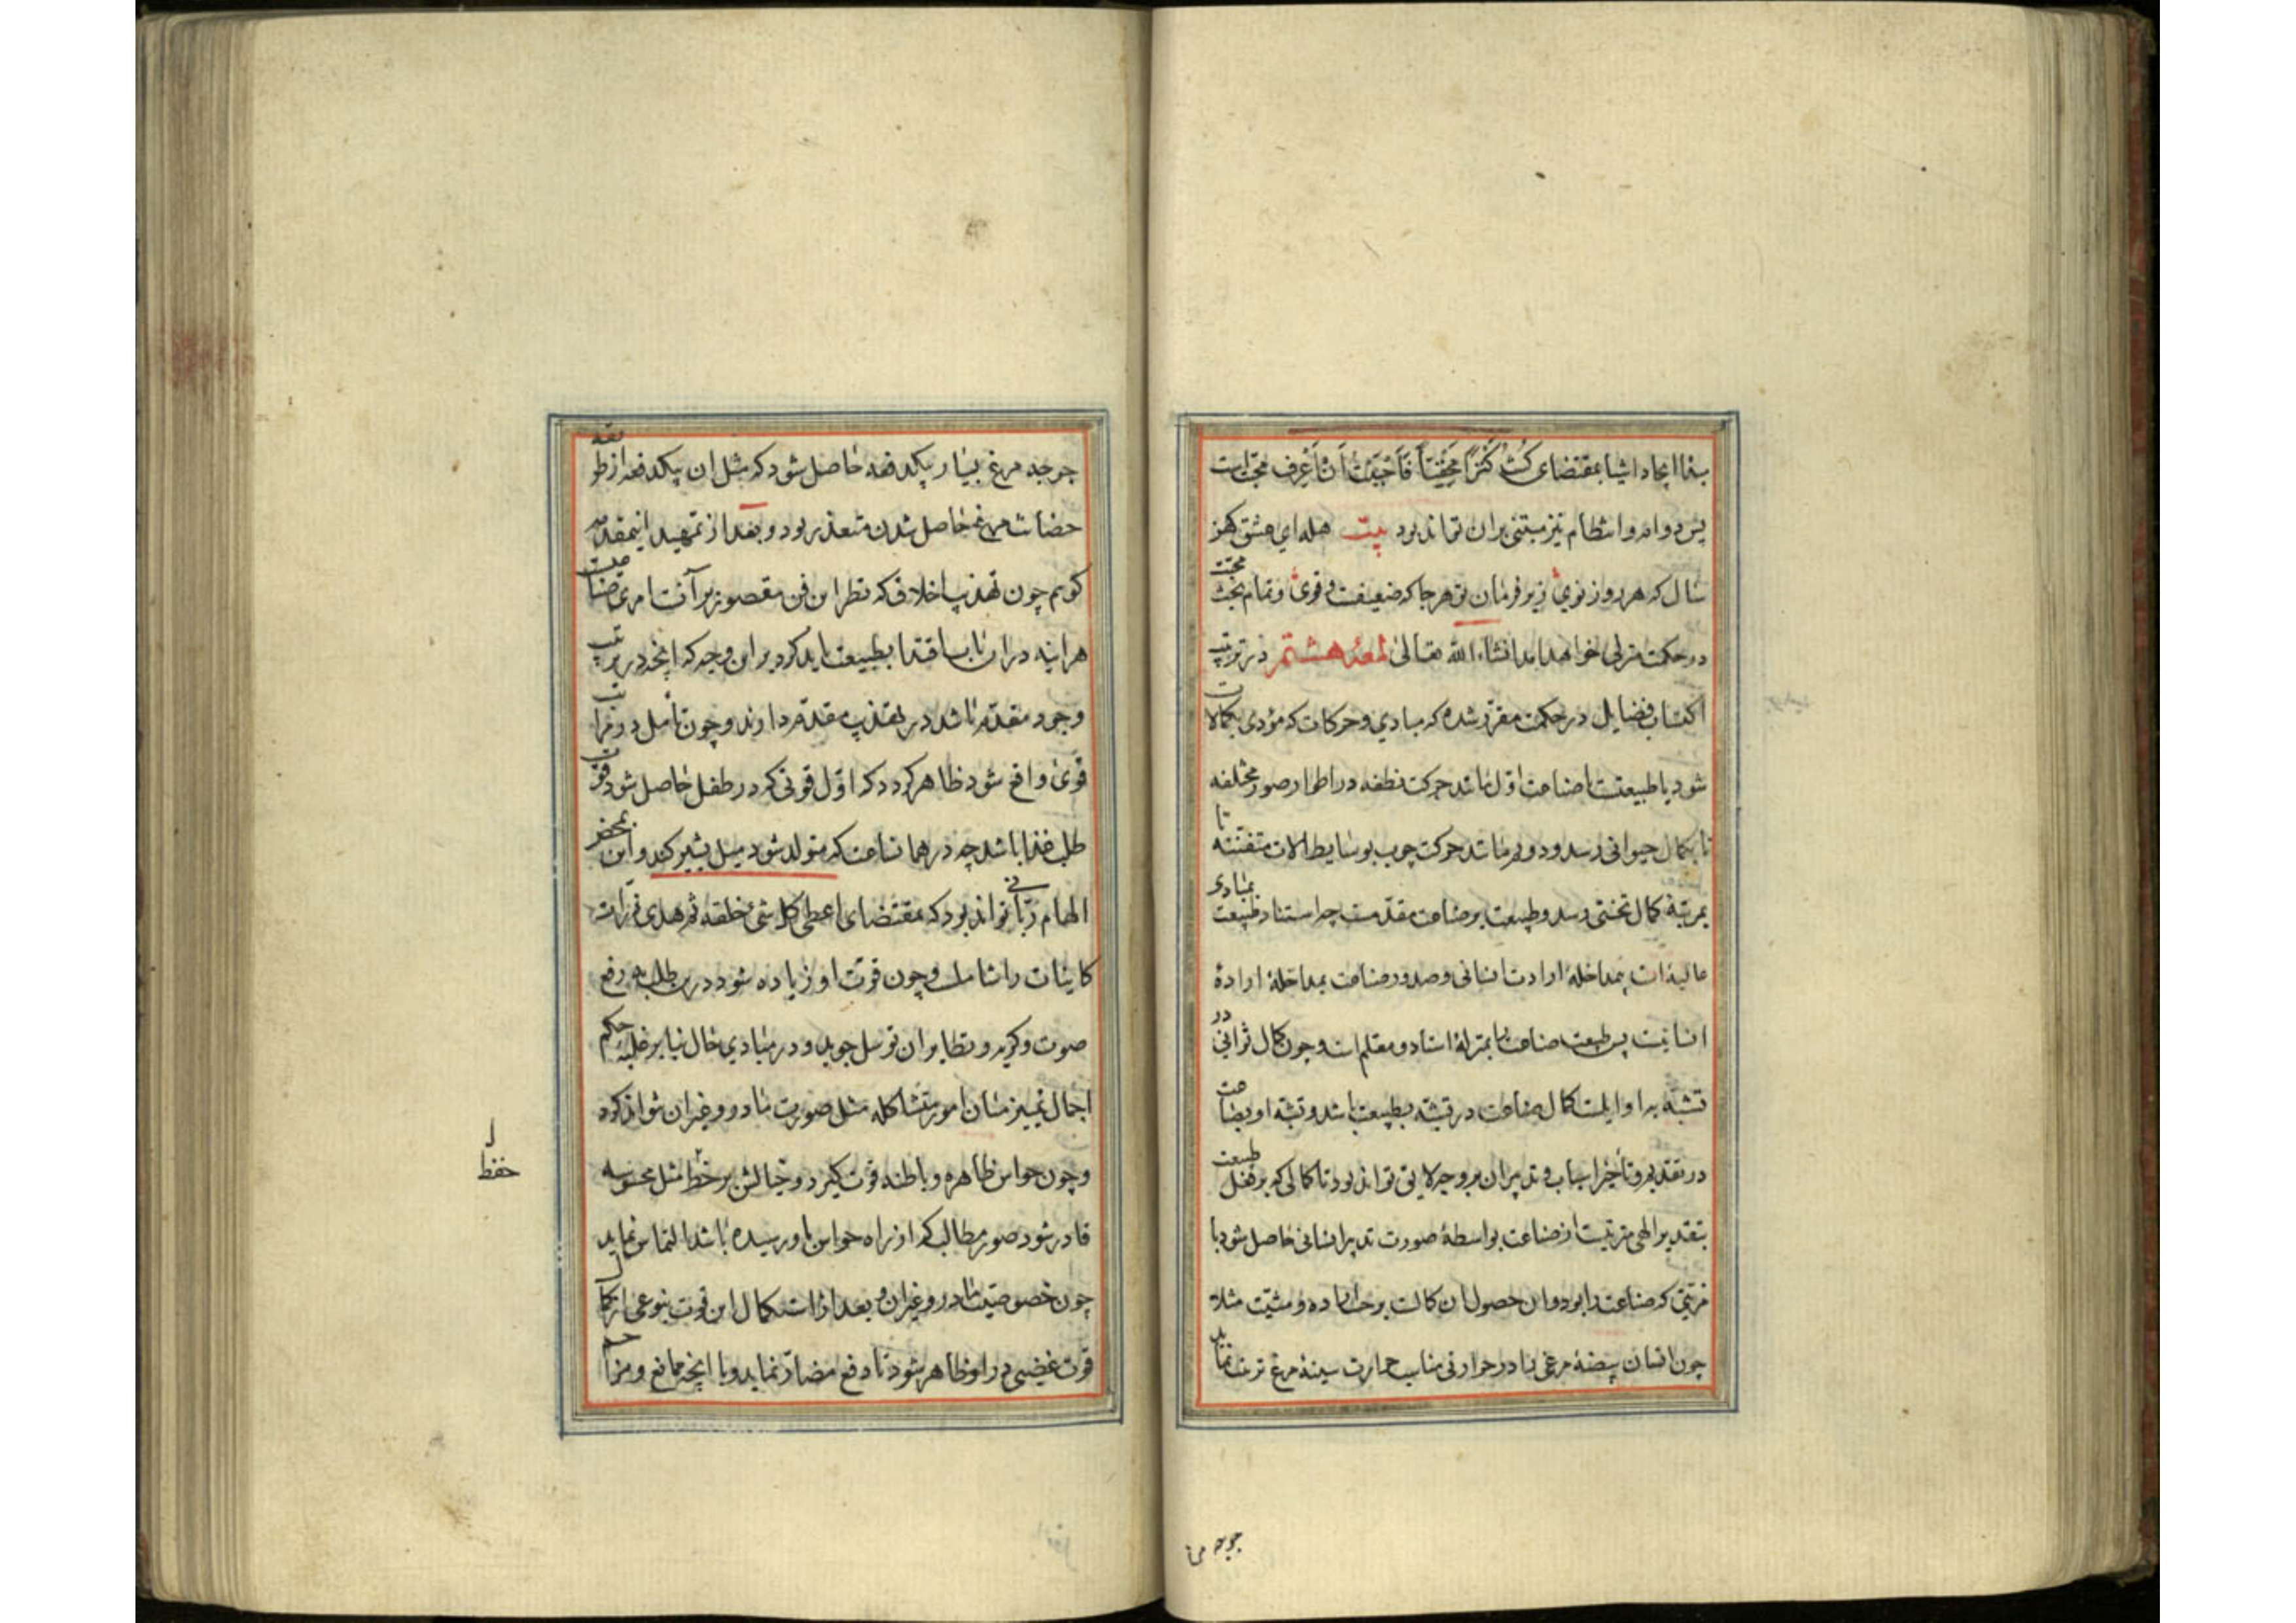 بنا ایجاد اشیا بمقتضای کُنْتُ کَنْزًا مَخْفِیًّا فَاَحْبَبْتُ اَنْ اُعْرَف محبّتست
پس دوام و انتظام نیز مبتنی بران تواند بود بیت هله ای عشق کهن
سال که هر روز نوی زیر فرمان تو هرجا که ضعیفت و قوی و تمام بحث محبّت
در حکمت منزلی خواهد آمد انشاء الله تعالی لمعهٔ هشتم در ترتیب
اکتساب فضایل در حکمت مقرّر شده که مبادی و حرکات که مؤدی بکمالات
شود یا طبیعتست یا صناعت اوّل مانند حرکت نطفه در اطوار صور مختلفه
تا بکمال حیوانی رسد و دوم مانند حرکت چوب بوسایط الات متفننه تا
بمرتبهٔ کمال تختی رسد و طبیعت بر صناعت مقدّمست چه استناد طبیعت بمبادی
عالیه‌ذات بیمداخلهٔ ارادت انسانی و صدور صناعت بمداخلهٔ ارادهٔ
انسانیت پس طبیعت صناعت را بمنزلهٔ استاد و معلم است و چون کمال ثوانی در
تشبّه به اوایلست کمال صناعت در تشبّه بطبیعت باشد و تشبّه او بطبیعت
در تقدیم و تأخیر اسباب و تدبیر ان بر وجه لایق تواند بود تا کمالی که بر فعل طبیعت
بتقدیر الهی مترتبست از صناعت بواسطهٔ صورت تدبیر انسانی حاصل شود با
مزیّتی که صناعت را بود و ان حصول ان کمالست بر حسب اراده و مشیّت مثلا
چون انسان بیضهٔ مرغی را در حرارتی مناسب حرارت سینهٔ مرغ تربیت نماید
جوجه مرغ
جوجه مرغ بسیار بیکدفعه حاصل شود که مثل ان بیکدفعه از طریقه
حضانت مرغ حاصل شدن متعذر بود و بعد از تمهید اینمقدمه
گویم چون تهذیب اخلاق که نظر این فن مقصور بر آنست امری صناعیست
هراینه دران باب اقتدا بطبیعت باید کرد بر این وجه که انچه در ترتیب
وجود مقدّم باشد در تهذیب مقدّم دارند و چون تأمل در مراتب
قوی واقع شود ظاهر کردد که اوّل قوتی که در طفل حاصل شود قوت
طلب غذا باشد چه در همان ساعت که متولد شود میل بشیر کند و این بمحض
الهام ربّانی تواند بود که مقتضای اعطی کل شئ خلقه ثم هدی ذرّات
کاینات را شاملست و چون قوّت او زیاده شود در طلب به رفع
صوت و کریه و نظایر ان توسل جوید و در مبادی حال بنا بر غلبهٔ حکم
اجمال تمییز میان امور متشاکله مثل صورت مادر و غیر ان نتواند کرد
و چون حواس ظاهره و باطنه قوّت کیرد و خیالش بر حفظ مثل محسوسه
ل
حفظ
قادر شود صور مطالب که از راه حواس باو رسیده باشد التماس نماید
چون خصوصیّت مادر و غیر ان و بعد از استکمال این قوت بنوعی از کمال
قوت غضبی در او ظاهر شود تا دفع مضارّ نماید و با انچه مانع و مزاحم